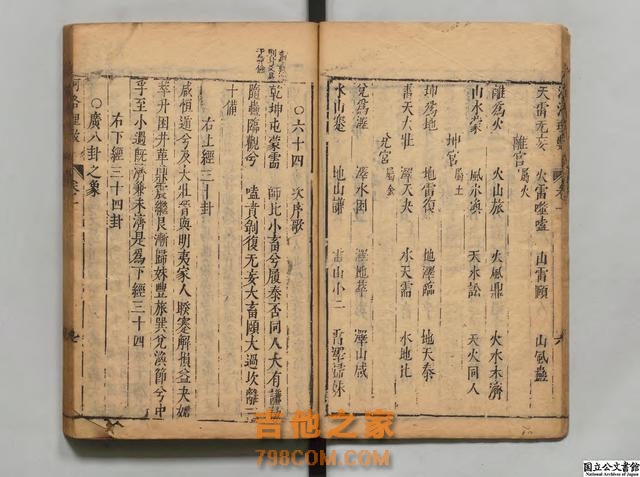 天雷无妄 火雷噬嗑 山雷頤 山風蠱
離宮屬火
離為火 火山旅 火風鼎 火水未濟
山水蒙 風水渙 天水訟 天火同人
坤宮屬土
坤為地 地雷復 地澤臨 地天泰
雷天大壯 澤天夬 水天需 水地比
兌宮屬金
兌為澤 澤水困 澤地萃 澤山咸
水山蹇 地山謙 雷山小 雷澤歸妹
六
○六十四 次序歌
乾坤屯蒙需 師比小畜兮履泰否同人大有謙
隨蠱臨觀兮 嗑賁剝復无妄大畜頤大過坎離三
十備
右上經三十卦
咸恒遁兮及大壯晉與明夷家人睽蹇解損益夬姤
萃升困井革鼎震繼艮漸歸妹豐旅巽兌渙節兮中
孚至小過既濟兼未濟是為下經三十四
右下經三十四卦
○廣八卦之象
河洛理數
卷一
七
吉他之家
798COM.COM
国立公文書館
National Archives of Japan